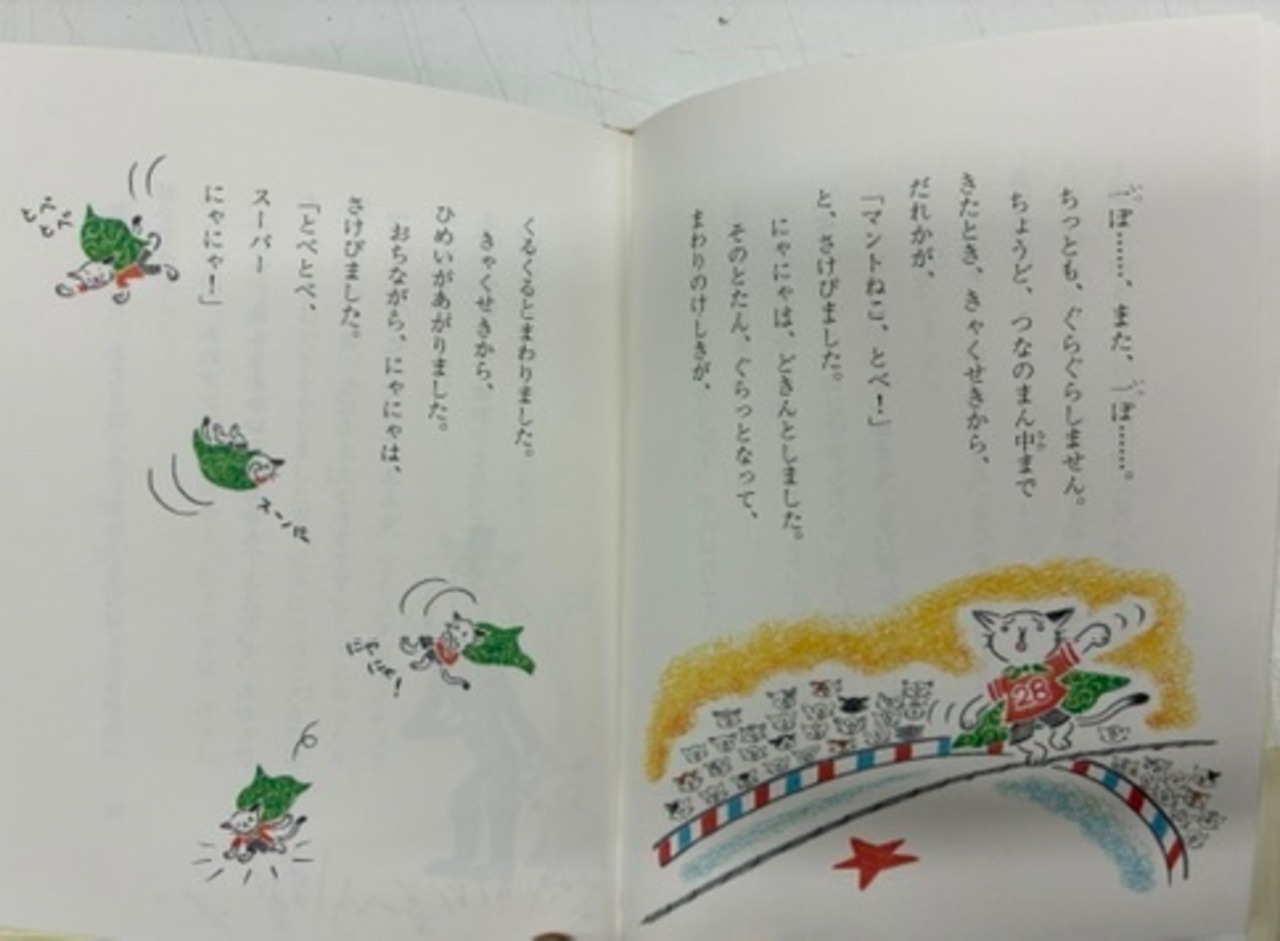 一ぽ……、また、一ぽ……。
ちっとも、ぐらぐらしません。
ちょうど、つなのまん中まで
きたとき、きゃくせきから、
だれかが、
「マントねこ、とべ！」
と、さけびました。
にゃにゃは、どきんとしました。
そのとたん、ぐらっとなって、
まわりのけしきが、
28
くるくるとまわりました。
きゃくせきから、
ひめいがあがりました。
おちながら、にゃにゃは、
さけびました。
「とべとべ、
スーパー
にゃにゃ！」
とべ
とべ
スーパー
にゃ
にゃ！